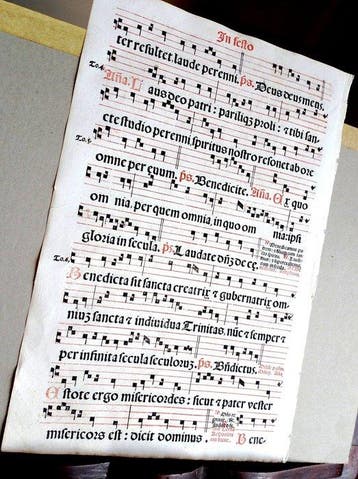 In festo
ter resultet laude perenni. ps. Deus deus meus.
To.4. Aña. Laus deo patri: pariliq3 proli: & tibi san-
cte studio perenni spiritus nostro resonet ab ore
To.5. omne per euum. ps. Benedicite. Aña. Ex quo
om nia, per quem omnia, in quo om nia: ipsi
gloria in secula. ps. Laudate
To.6. Benedicta sit sancta creatrix & gubernatrix om-
niu3 sancta & indiuidua Trinitas, nūc & semper &
per infinita secula seculoru3. ps. Bñdictus.
Estote ergo misericordes: sicut & pater vester
misericors est: dicit dominus. Bene-